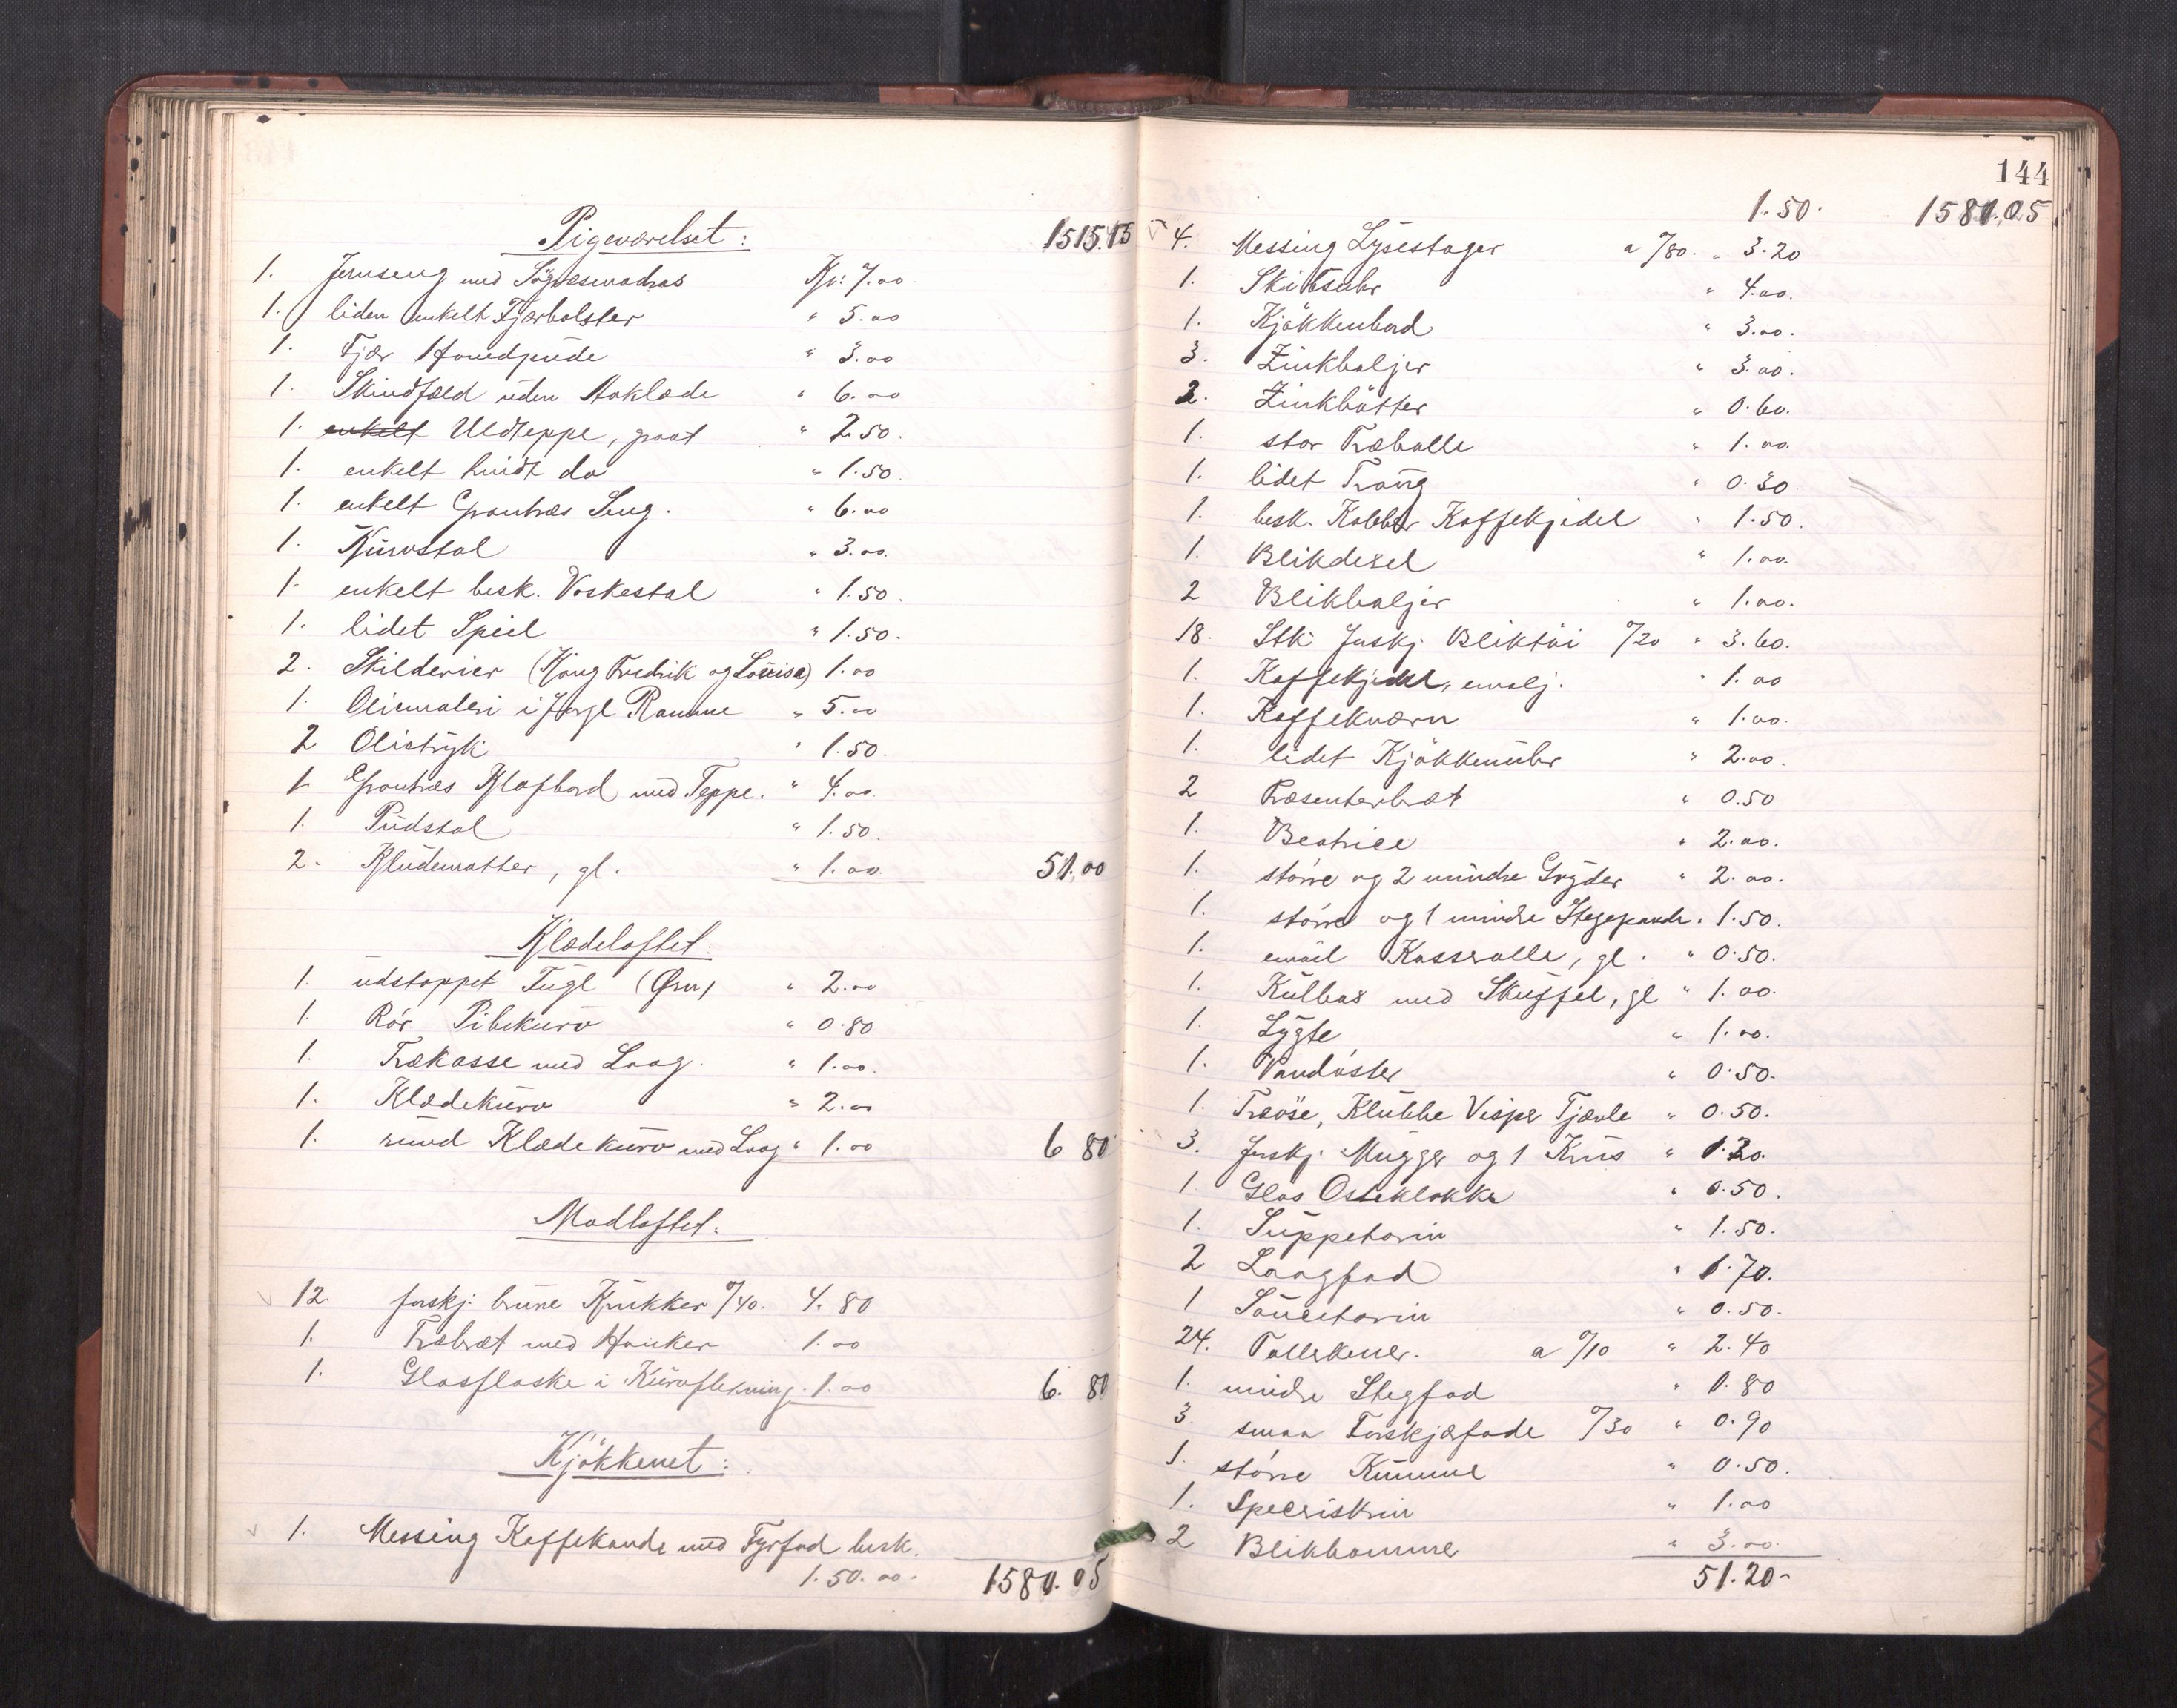 Pigeværelset: 1515.15
1. Jernseng med Søgræsmadras Kr: 7.00
1. liden enkelt Fjærbolster " 5.00
1. Fjær Hovedpude " 3.00
1. Skindfæld uden Aaklæde " 6.00
1. enkelt Uldteppe, graat " 2.50.
1. enkelt hvidt do " 1.50.
1. enkelt Grantræs Seng. " 6.00
1. Kurvstol " 3.00.
1. enkelt besk. Vaskestol " 1.50.
1. lidet Speil " 1.50.
2. Skilderier (Kong Fredrik og Lovisa) 1.00
1. Oliemaleri i forgl Ramme " 5.00
2 Olietryk " 1.50.
1. Grantræs Klafbord med Teppe. " 4.00.
1. Pudstol " 1.50.
2. Kludematter, gl. " 1.00. 51.00
Klædeloftet:
1. udstoppet Fugl (Ørn) " 2.00
1. Rør Pibekurv " 0.80
1. Trækasse med Laag. " 1.00.
1. Klædekurv " 2.00
1. rund Klædekurv med Laag " 1.00 6 80
Madloftet:
12. forskj. brune Krukker %40. 4.80
1. Træbræt med Hanker 1.00
1. Glasflaske i Kurvfletning. 1.00 6. 80
Kjøkkenet:
1. Messing Kaffekande med Fyrfad besk.
1.50.00. 1580.05
144
1.50. 1580.05
4. Messing Lysestager a %80. " 3.20
1. Skibsuhr " 4.00.
1. Kjøkkenbord " 3.00.
3. Zinkbaljer " 3.00.
2. Zinkbøtter " 0.60.
1. stor Træbolle " 1.00.
1. lidet Traug " 0.30
1. besk. Kobber Kaffekjedel " 1.50.
1. Blikdesel " 1.00.
2 Blikbaljer " 1.00.
18. Stk. forskj. Bliktøi %20 " 3.60.
1. Kaffekjedel, emalj. " 1.00
1. Kaffekværn " 1.00.
1. lidet Kjøkkenuhr " 2.00.
2 Præsenterbræt " 0.50
1. Beatrice " 2.00.
1. større og 2 mindre Gryder " 2.00.
1. større og 1 mindre Stegepande. " 1.50.
1. email Kasserolle, gl. " 0.50.
1. Kulbox med Skuffel, gl " 1.00.
1. Lygte " 1.00.
1. Vandøster " 0.50.
1. Træøse, Klubbe Visper Tjærle " 0.50.
3. forskj. Mugger og 1 Krus " 1.20.
1. Glas Osteklokke " 0.50.
1. Suppeterin " 1.50.
2 Laagfad " 1.70.
1 Sauceterin " 0.50.
24. Tallerkener. a %10 " 2.40
1. mindre Stegfad " 0.80
3. smaa Forskjærfade %30 " 0.90
1. større Kumme " 0.50.
1. Speceriskrin " 1.00
2 Blikkommer " 3.00.
51.20-